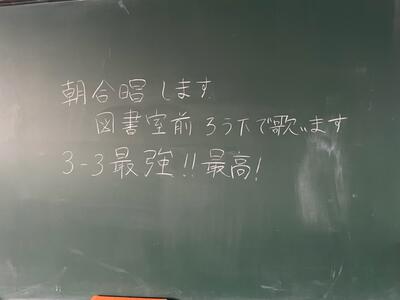 朝合唱します
図書室前ろう下で歌います
3-3最強!!最高!